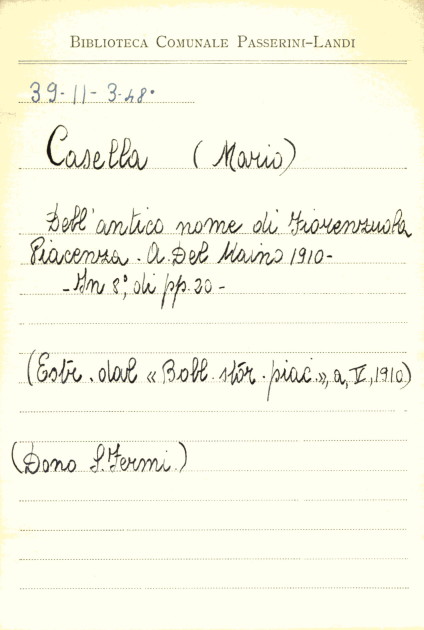 BIBLIOTECA COMUNALE PASSERINI-LANDI
39-11-3-48.
Casella (Mario)
Dell'antico nome di Fiorenzuola
Piacenza. A. Del Maino 1910-
-In 8°, di pp. 20-
(Estr. dal «Boll. stor. piac.», a, V, 1910)
(Dono S. Fermi.)